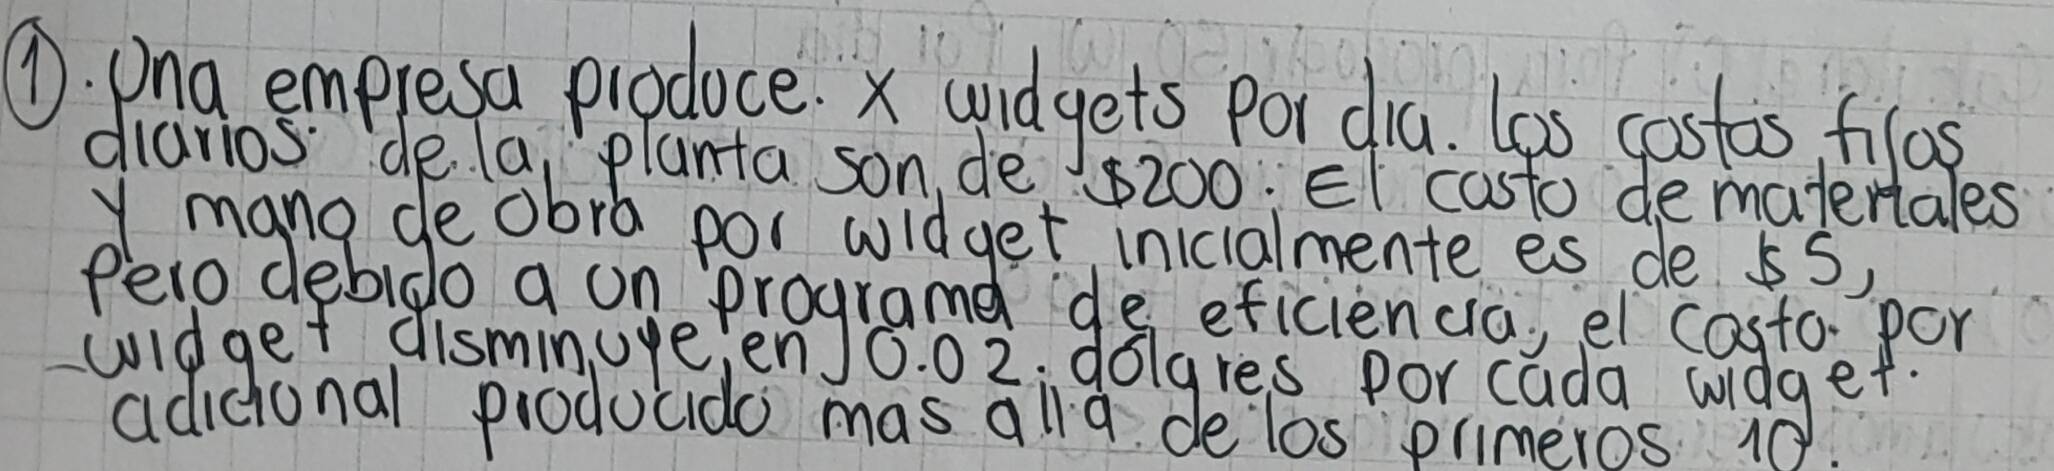 ①. Una empresa produce. x widgets por dia. Los costos fijos
diarios de la planta son de $200. El costo de materiales
y mano de obra por widget inicialmente es de $5,
pero debido a un programa de eficiencia, el costo por
widget disminuye en 0.02 dólares por cada widget
adicional producido mas alla de los primeros 10.